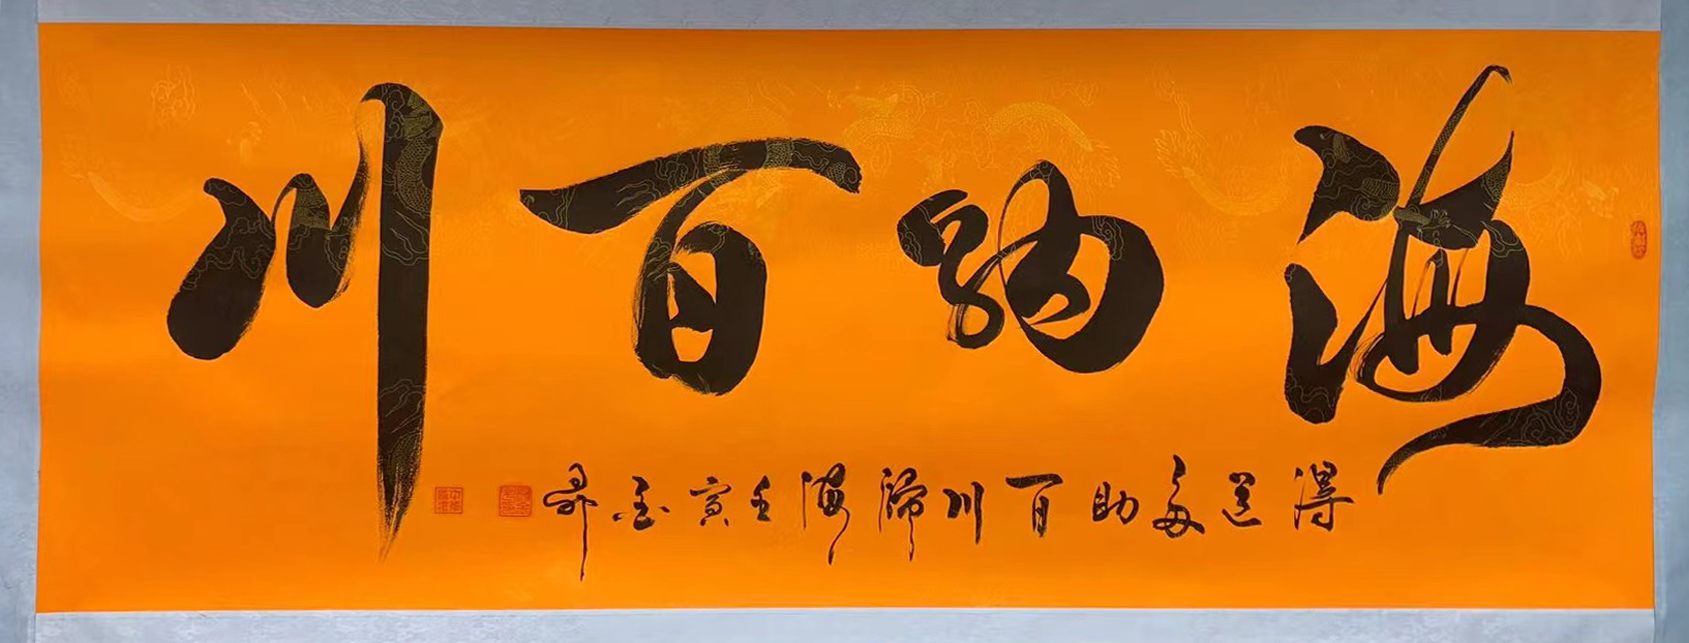 海纳百川
得道多助百川归海壬寅金昇